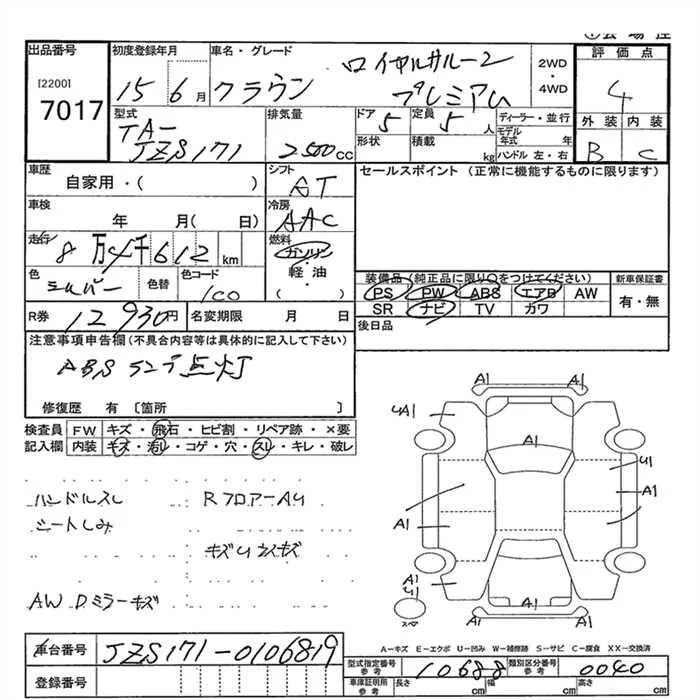 出品番号
[2200]
7017
初度登録年月
15年6月
車名・グレード
クラウン
ロイヤルサルーン
プレミアム
2WD
・
4WD
評価点
4
外装 内装
B C
型式
TA-
JZS171
排気量
2500cc
ドア 5
定員 5人
形状
積載 kg
ディーラー・並行
モデル年式 年
ハンドル 左・右
車歴
自家用・( )
シフト
AT
セールスポイント (正常に機能するものに限ります)
車検
年 月( 日)
冷房
AAC
走行
8万4千612km
燃料
ガソリン
・
軽・油
( )
色
シルバー
色替
色コード
1C0
装備品(純正品に限り○をつけてください)
PS PW ABS エアB AW
SR ナビ TV カワ
新車保証書
有・無
R券 12930円
名変期限 月 日
後日品
注意事項申告欄(不具合内容等は具体的に記入して下さい)
ABSランプ点灯
修復歴 有 〔箇所 〕
検査員
記入欄
FW キズ・飛石・ヒビ割・リペア跡・×要
内装 キズ・汚レ・コゲ・穴・スレ・キレ・破レ
ハンドルスレ
シートしみ
RフロアーAU
AW Dミラーキズ
A1
A1
UA1
A1
U1
A1
A1
A1
U
A1
A1
A1
A-キズ E-エクボ U-凹み W-補修跡 S-サビ C-腐食 XX-交換済
車台番号 JZS171-0106819
登録番号
型式指定番号
参考
10688
類別区分番号
参考
0040
車庫証明用
参考
長さ cm
幅 cm
高さ cm